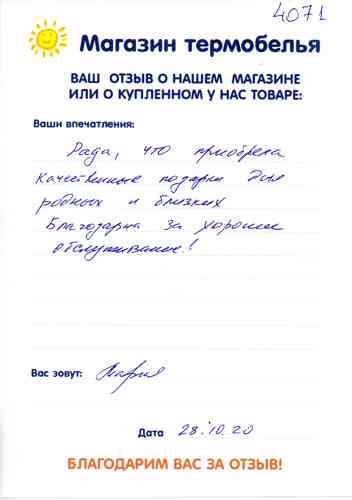 4071
Магазин термобелья
ВАШ ОТЗЫВ О НАШЕМ МАГАЗИНЕ
ИЛИ О КУПЛЕННОМ У НАС ТОВАРЕ:
Ваши впечатления:
Рада, что приобрела
качественные подарки для
родных и близких
Благодарна за хорошее
обслуживание!
Вас зовут: Мария
Дата 28.10.20
БЛАГОДАРИМ ВАС ЗА ОТЗЫВ!